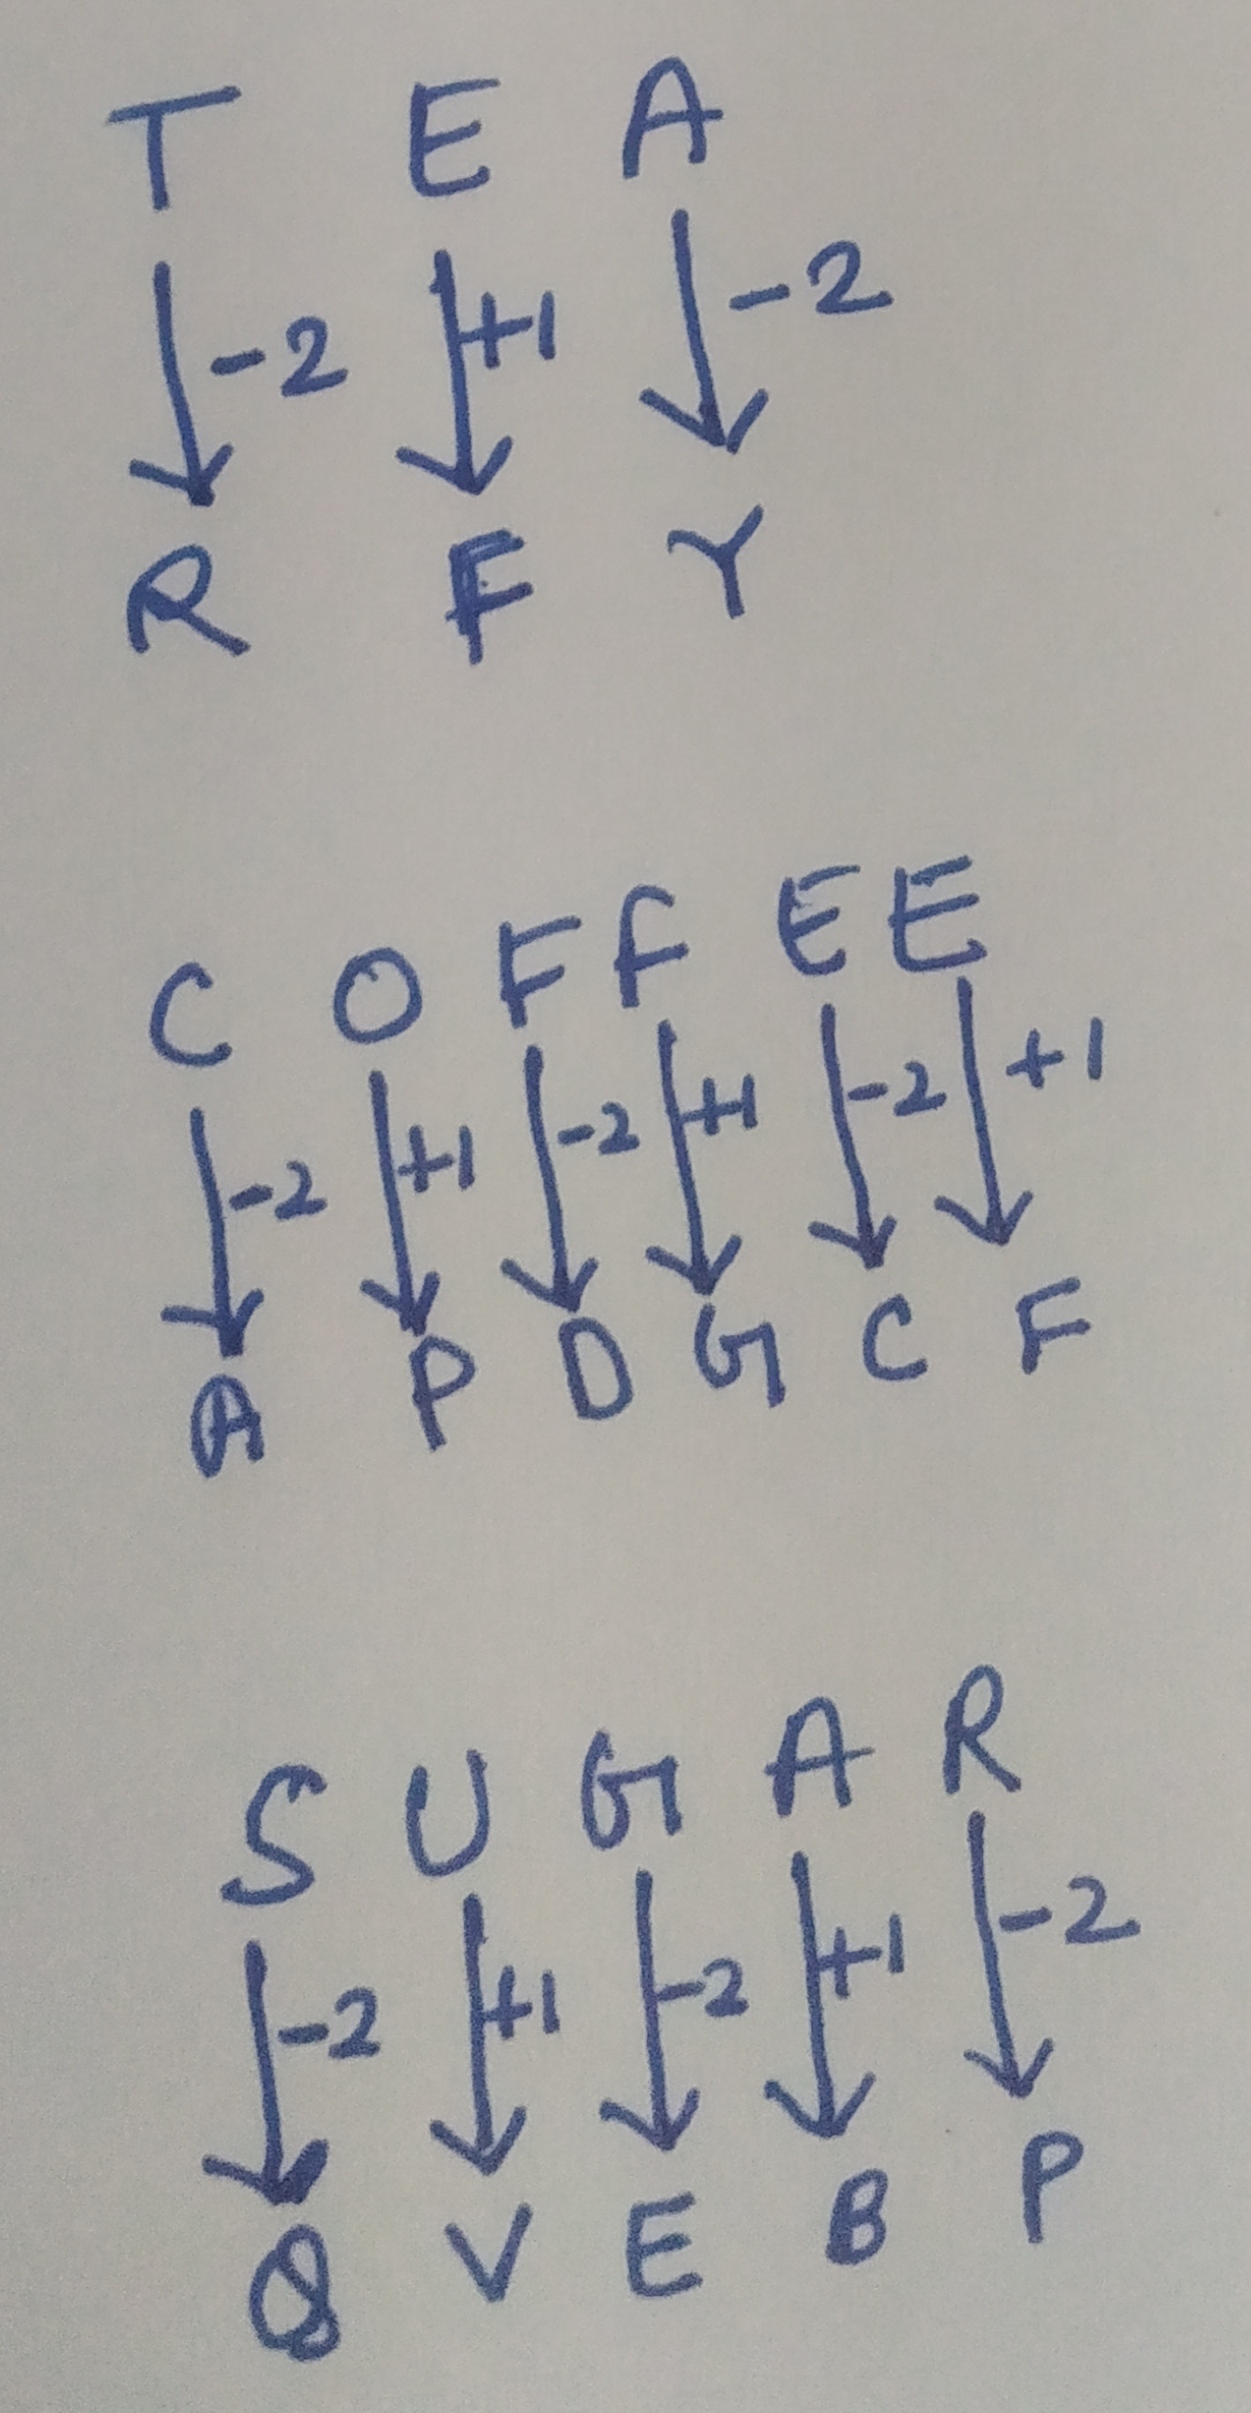 T E A
-2 +1 -2
R F Y
C O F F E E
-2 +1 -2 +1 -2 +1
A P D G C F
S U G A R
-2 +1 -2 +1 -2
Q V E B P